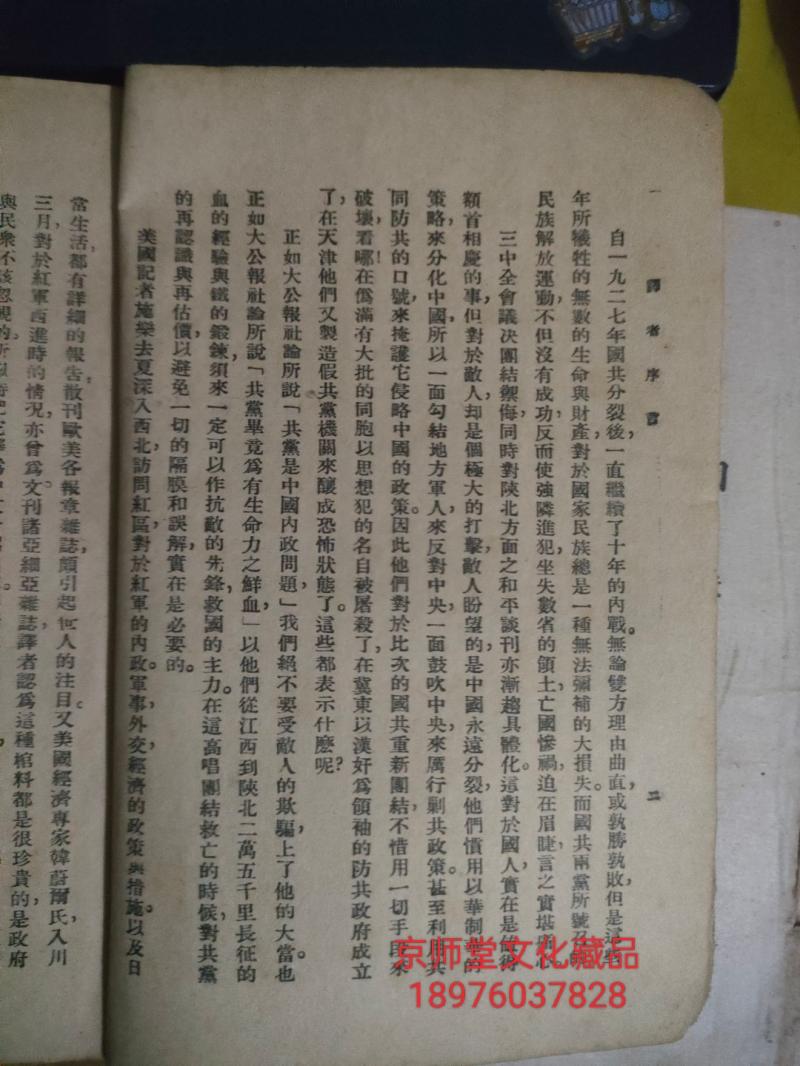 一 譯者序言 二
自一九二七年國共分裂後，一直繼續了十年的內戰。無論雙方理由曲直，或孰勝孰敗，但是這些
年所犧牲的無數的生命與財產，對於國家民族總是一種無法彌補的大損失。而國共兩黨所號召
民族解放運動，不但沒有成功，反而使強隣進犯，坐失數省的領土，亡國慘禍，迫在眉睫，言之實堪痛心。
三中全會議決團結禦侮，同時對陝北方面之和平談刊亦漸趨具體化。這對於國人，實在是值得
額首相慶的事，但對於敵人，却是個極大的打擊，敵人盼望的，是中國永遠分裂，他們慣用以華制華的
策略，來分化中國，所以一面勾結地方軍人，來反對中央，一面鼓吹中央，來厲行剿共政策。甚至利用共
同防共的口號，來掩護它侵略中國的政策。因此他們對於比次的國共重新團結，不惜用一切手段來
破壞，看哪！在僞滿有大批的同胞以思想犯的名自被屠殺了，在冀東以漢奸爲領袖的防共政府成立
了，在天津他們又製造假共黨機關來釀成恐怖狀態了。這些都表示什麼呢？
正如大公報社論所說「共黨是中國內政問題，」我們絕不要受敵人的欺騙，上了他的大當。也
正如大公報社論所說「共黨畢竟爲有生命力之鮮血，」以他們從江西到陝北二萬五千里長征的
血的經驗與鐵的鍛鍊，須來一定可以作抗敵的先鋒，救國的主力。在這高唱團結救亡的時候，對共黨
的再認識與再估價，以避免一切的隔膜和誤解，實在是必要的。
美國記者施樂去夏深入西北，訪問紅區，對於紅軍的內政。軍事，外交，經濟的政策與措施。以及日
常生活，都有詳細的報告，散刊歐美各報章雜誌，頗引起何人的注目。又美國經濟專家韓蔚爾氏，入川
三月，對於紅軍西進時的情況，亦曾爲文，刊諸亞細亞雜誌，譯者認爲這種棺料都是很珍貴的，是政府
與民衆不該忽視的。
京师堂文化藏品
18976037828